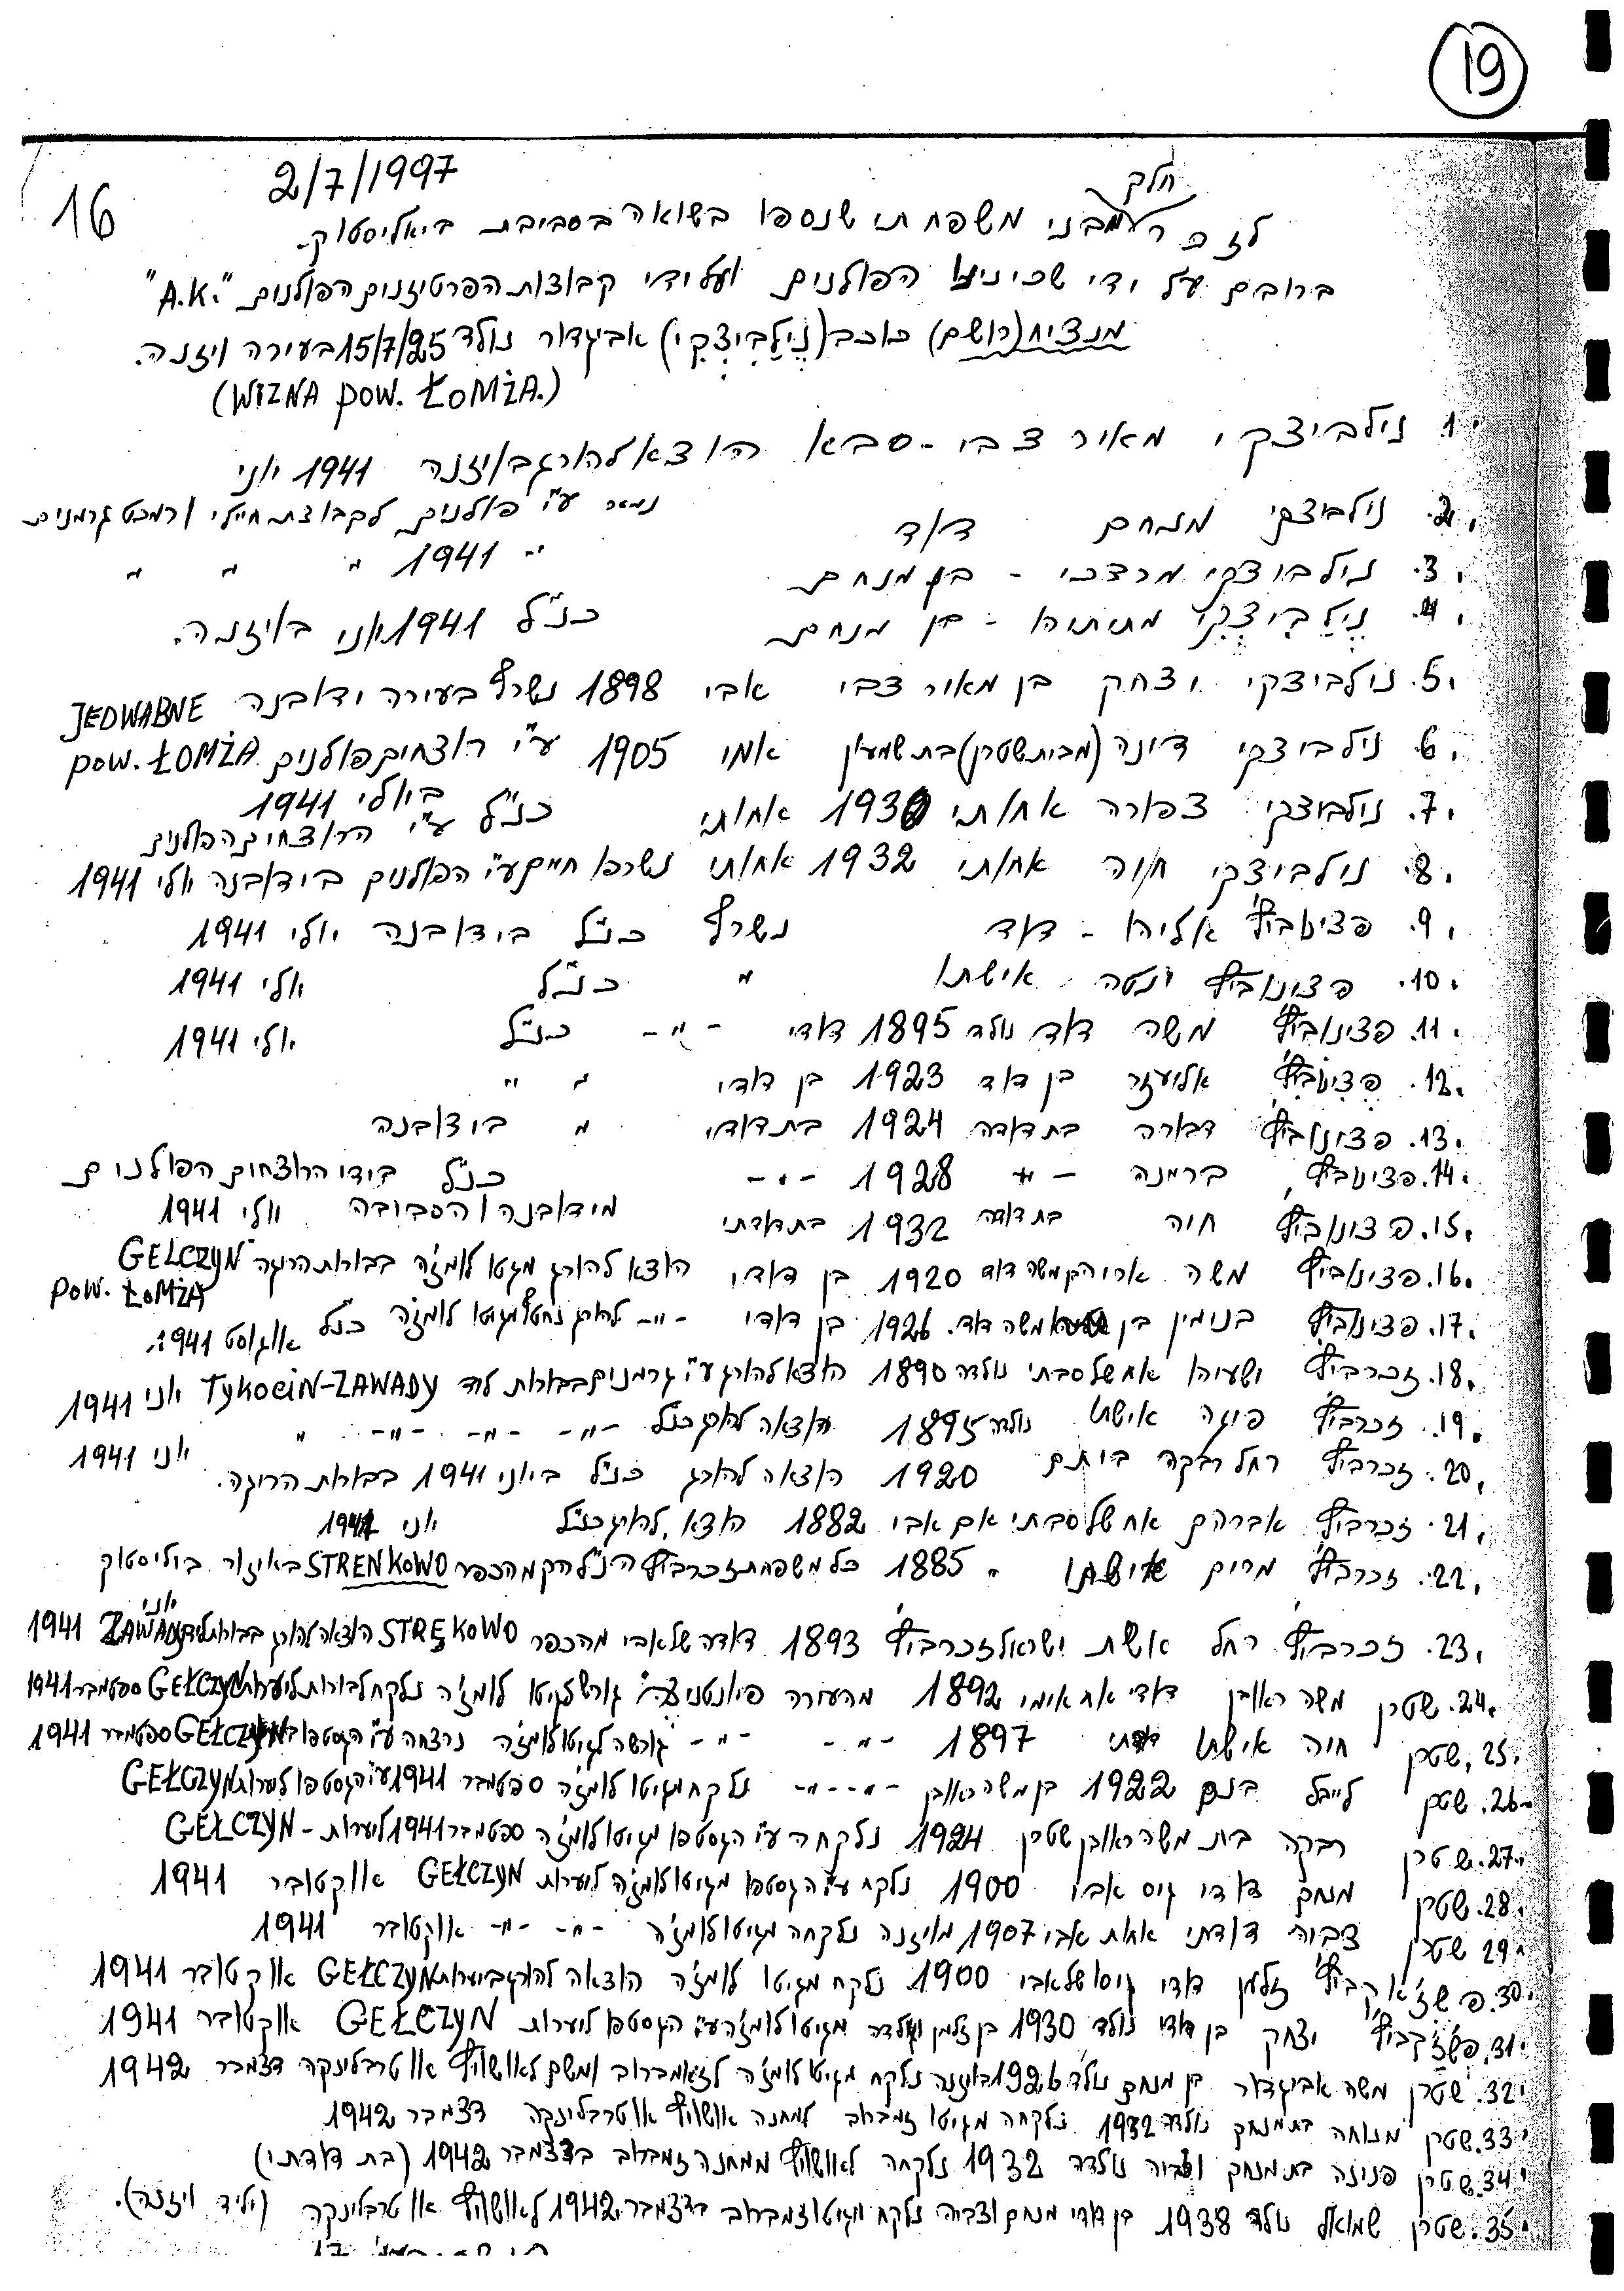 19
16
2/7/1997
חלק
לזכר מבני משפחתי שנספו בשואה בסביבת ביאליסטוק.
ברובם על ידי שכינינו הפולנים ועל ידי קבוצות הפרטיזנים הפולנים "A.K."
מנציח (רושם) כוכב (נילביצקי) אביגדור נולד 15/7/25 בעירה ויזנה.
(WIZNA POW. ŁOMŻA.)
1. נילביצקי מאיר צבי - סבא הוצא להורג בויזנה 1941 יוני
2. נילביצקי מנחם דוד נמסר ע"י פולנים לקבוצת חיילי ורמכט גרמנים
3. נילביצקי מרדכי - בן מנחם -" 1941 " " "
4. נילביצקי מתיתיהו - בן מנחם כנ"ל 1941 יוני בויזנה.
5. נילביצקי יצחק בן מאיר צבי אבי 1898 נשרף בעירה ידובנה JEDWABNE
6. נילביצקי דינה (מבית שטרן) בת שמעון אמי 1905 ע"י רוצחים פולנים POW. ŁOMŻA
ביולי 1941
7. נילביצקי צפורה אחותי 1930 אחותי כנ"ל ע"י הרוצחים הפולנים
8. נילביצקי חוה אחותי 1932 אחותי נשרפו חיים ע"י הפולנים בידובנה יולי 1941
9. פצינוביץ' אליהו - דוד נשרף כנ"ל בידובנה יולי 1941
10. פצינוביץ' יטה אישתו " כנ"ל יולי 1941
11. פצינוביץ' משה דוד נולד 1895 דודי -"- כנ"ל יולי 1941
12. פצינוביץ' אליעזר בן דוד 1923 בן דודי " "
13. פצינוביץ' דבורה בת דודה 1924 בת דודי " בידובנה
14. פצינוביץ' ברמנה -"- 1928 -"- כנ"ל בידי הרוצחים הפולנים
15. פצינוביץ' חיה בת דודה 1932 בת דודתי מידובנה והסביבה יולי 1941
16. פצינוביץ' משה אריה בן משה דוד 1920 בן דודי הוצא להורג מגטו לומז'ה בבורות הריגה GEŁCZYN
POW. ŁOMŻA
17. פצינוביץ' בנימין בן משה דוד. 1926 בן דודי -"- להורג נחטף מגיטו לומז'ה כנ"ל אוגוסט 1941.
18. זכרביץ' ישעיהו אח של סבתי נולד 1890 הוצא להורג ע"י גרמנים בבורות ליד TYKOCIN-ZAWADY יוני 1941
19. זכרביץ' פיגה אישתו נולדה 1895 הוצאה להורג כנ"ל -"- -"- -"- "
20. זכרביץ' רחל רבקה ביתם 1920 הוצאה להורג כנ"ל ביוני 1941 בבורות הריגה. יוני 1941
21. זכרביץ' אברהם אח של סבתי אם אבי 1882 הוצא להורג כנ"ל יוני 1941
22. זכרביץ' מרים אישתו " 1885 כל משפחת זכרביץ' הנ"ל הן מהכפר STRENKOWO באיזור ביליסטוק
23. זכרביץ' רחל אשת ישראל זכרביץ' 1893 דודה של אבי מהכפר STRĘKOWO הוצאה להורג בבורות ליד ZAWADY יוני 1941
24. שטרן משה ראובן דודי אח אימי 1892 מהעירה פיונטניצה גורש לגיטו לומז'ה נלקח לבורות ליערות GEŁCZYN ספטמבר 1941
25. שטרן חיה אישתו דודתי 1897 -"- -"- גורשה לגיטו לומז'ה נרצחה ע"י הגסטפו GEŁCZYN ספטמבר 1941
26. שטרן לייבל בנם 1922 בן משה ראובן -"--"- נלקח מגיטו לומז'ה ספטמבר 1941 ע"י הגסטפו ליערות GEŁCZYN
27. שטרן רבקה בת משה ראובן שטרן 1924 נלקחה ע"י הגסטפו מגיטו לומז'ה ספטמבר 1941 ליערות - GEŁCZYN
28. שטרן מנחם דודי גיס אבי 1900 נלקח ע"י הגסטפו מגיטו לומז'ה ליערות GEŁCZYN אוקטובר 1941
29. שטרן צביה דודתי אחות אבי 1907 מויזנה נלקחה מגיטו לומז'ה -"- -"- אוקטובר 1941
30. זלמן דודי גיסו של אבי 1900 נלקח מגיטו לומז'ה הוצאה להורג ביערות GEŁCZYN אוקטובר 1941
31. יצחק בן דודי נולד 1930 בן זלמן מגיטו לומז'ה ע"י הגסטפו ליערות GEŁCZYN אוקטובר 1941
32. שטרן משה אביגדור בן מנחם נולד 1926 בויזנה נלקח מגיטו לומז'ה לזאמברוב ומשם לאושויץ או טרבלינקה דצמבר 1942
33. שטרן מנוחה בת מנחם נולדה 1932 נלקחה מגיטו זמברוב למחנה אושויץ או טרבלינקה דצמבר 1942
34. שטרן פנינה בת מנחם וצביה נולדה 1932 נלקחה לאושויץ ממחנה זמברוב בדצמבר 1942 (בת דודתי)
35. שטרן שמואל נולד 1938 בן דודי מנחם וצביה נלקח מגיטו זמברוב בדצמבר 1942 לאושויץ או טרבלינקה (יליד ויזנה).